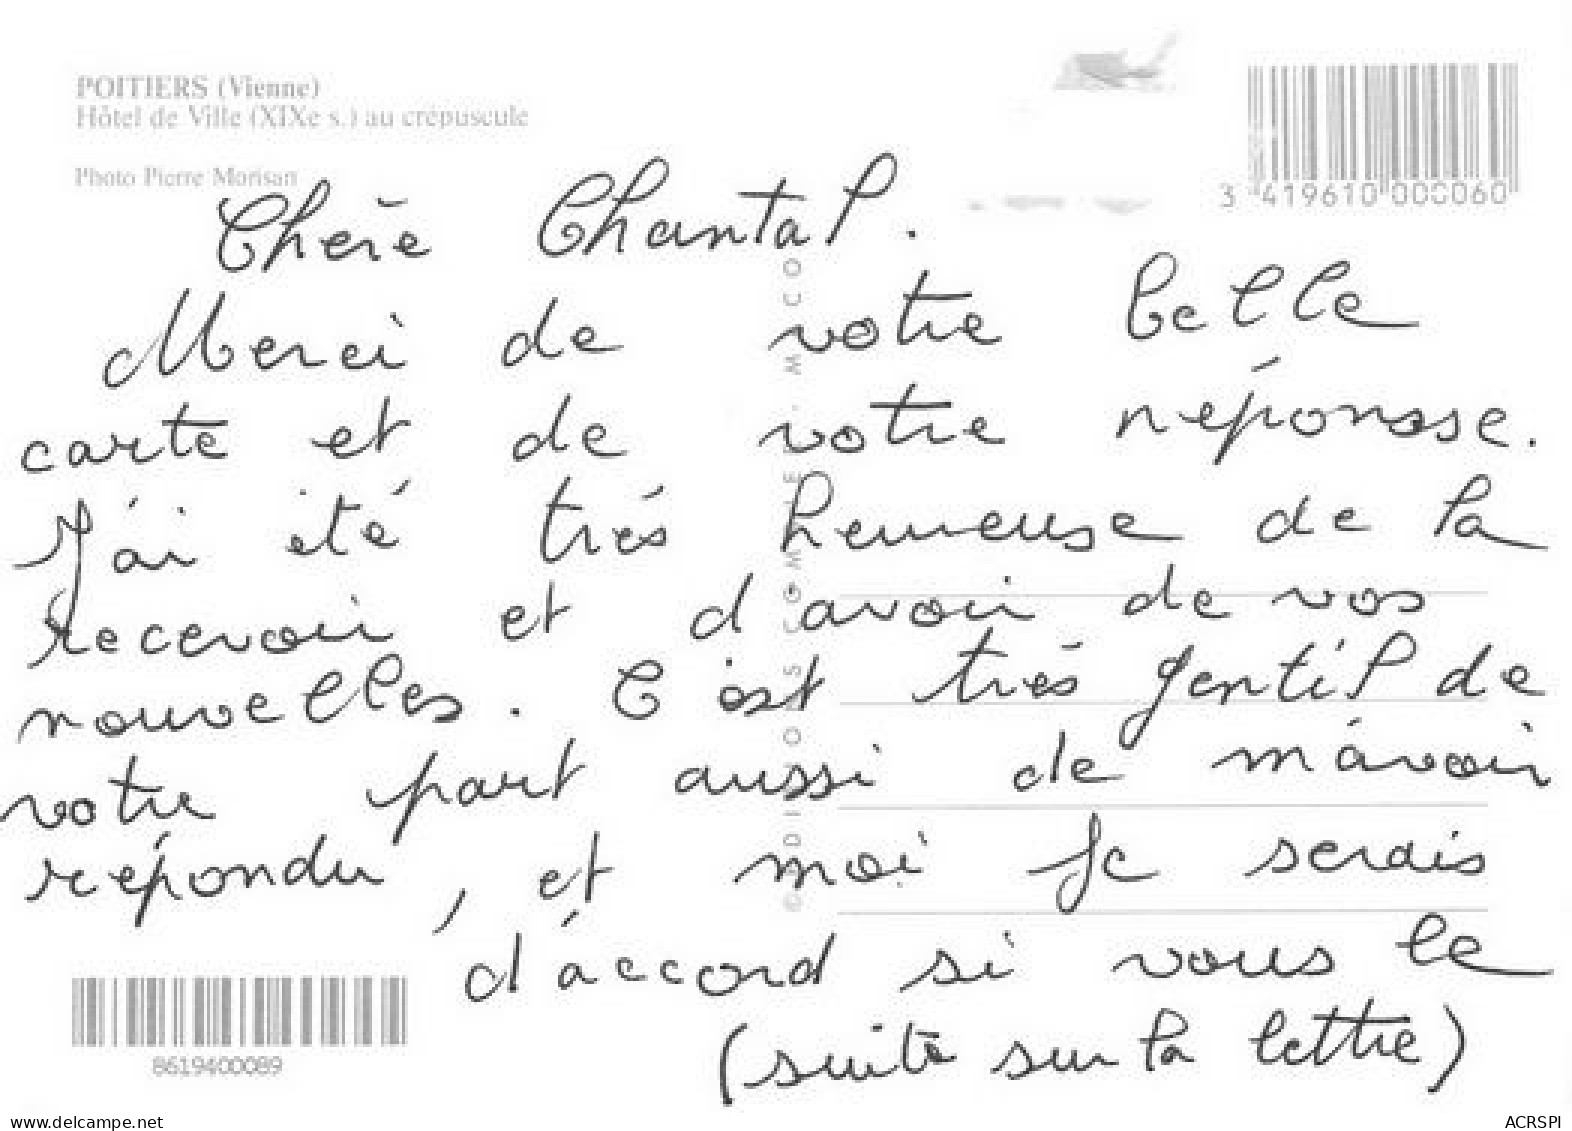 POITIERS (Vienne)
Hôtel de Ville (XIXe s.) au crépuscule
Photo Pierre Morisan
3 419610 000060
Chère Chantal.
Merci de votre belle
carte et de votre réponsse.
J'ai été trés heureuse de la
recevoir et d'avoir de vos
nouvelles. C'est trés gentil de
votre part aussi de m'avoir
répondu, et moi Je serais
d'accord si vous le
(suite sur la lettre)
8619400089
www.delcampe.net
ACRSPI